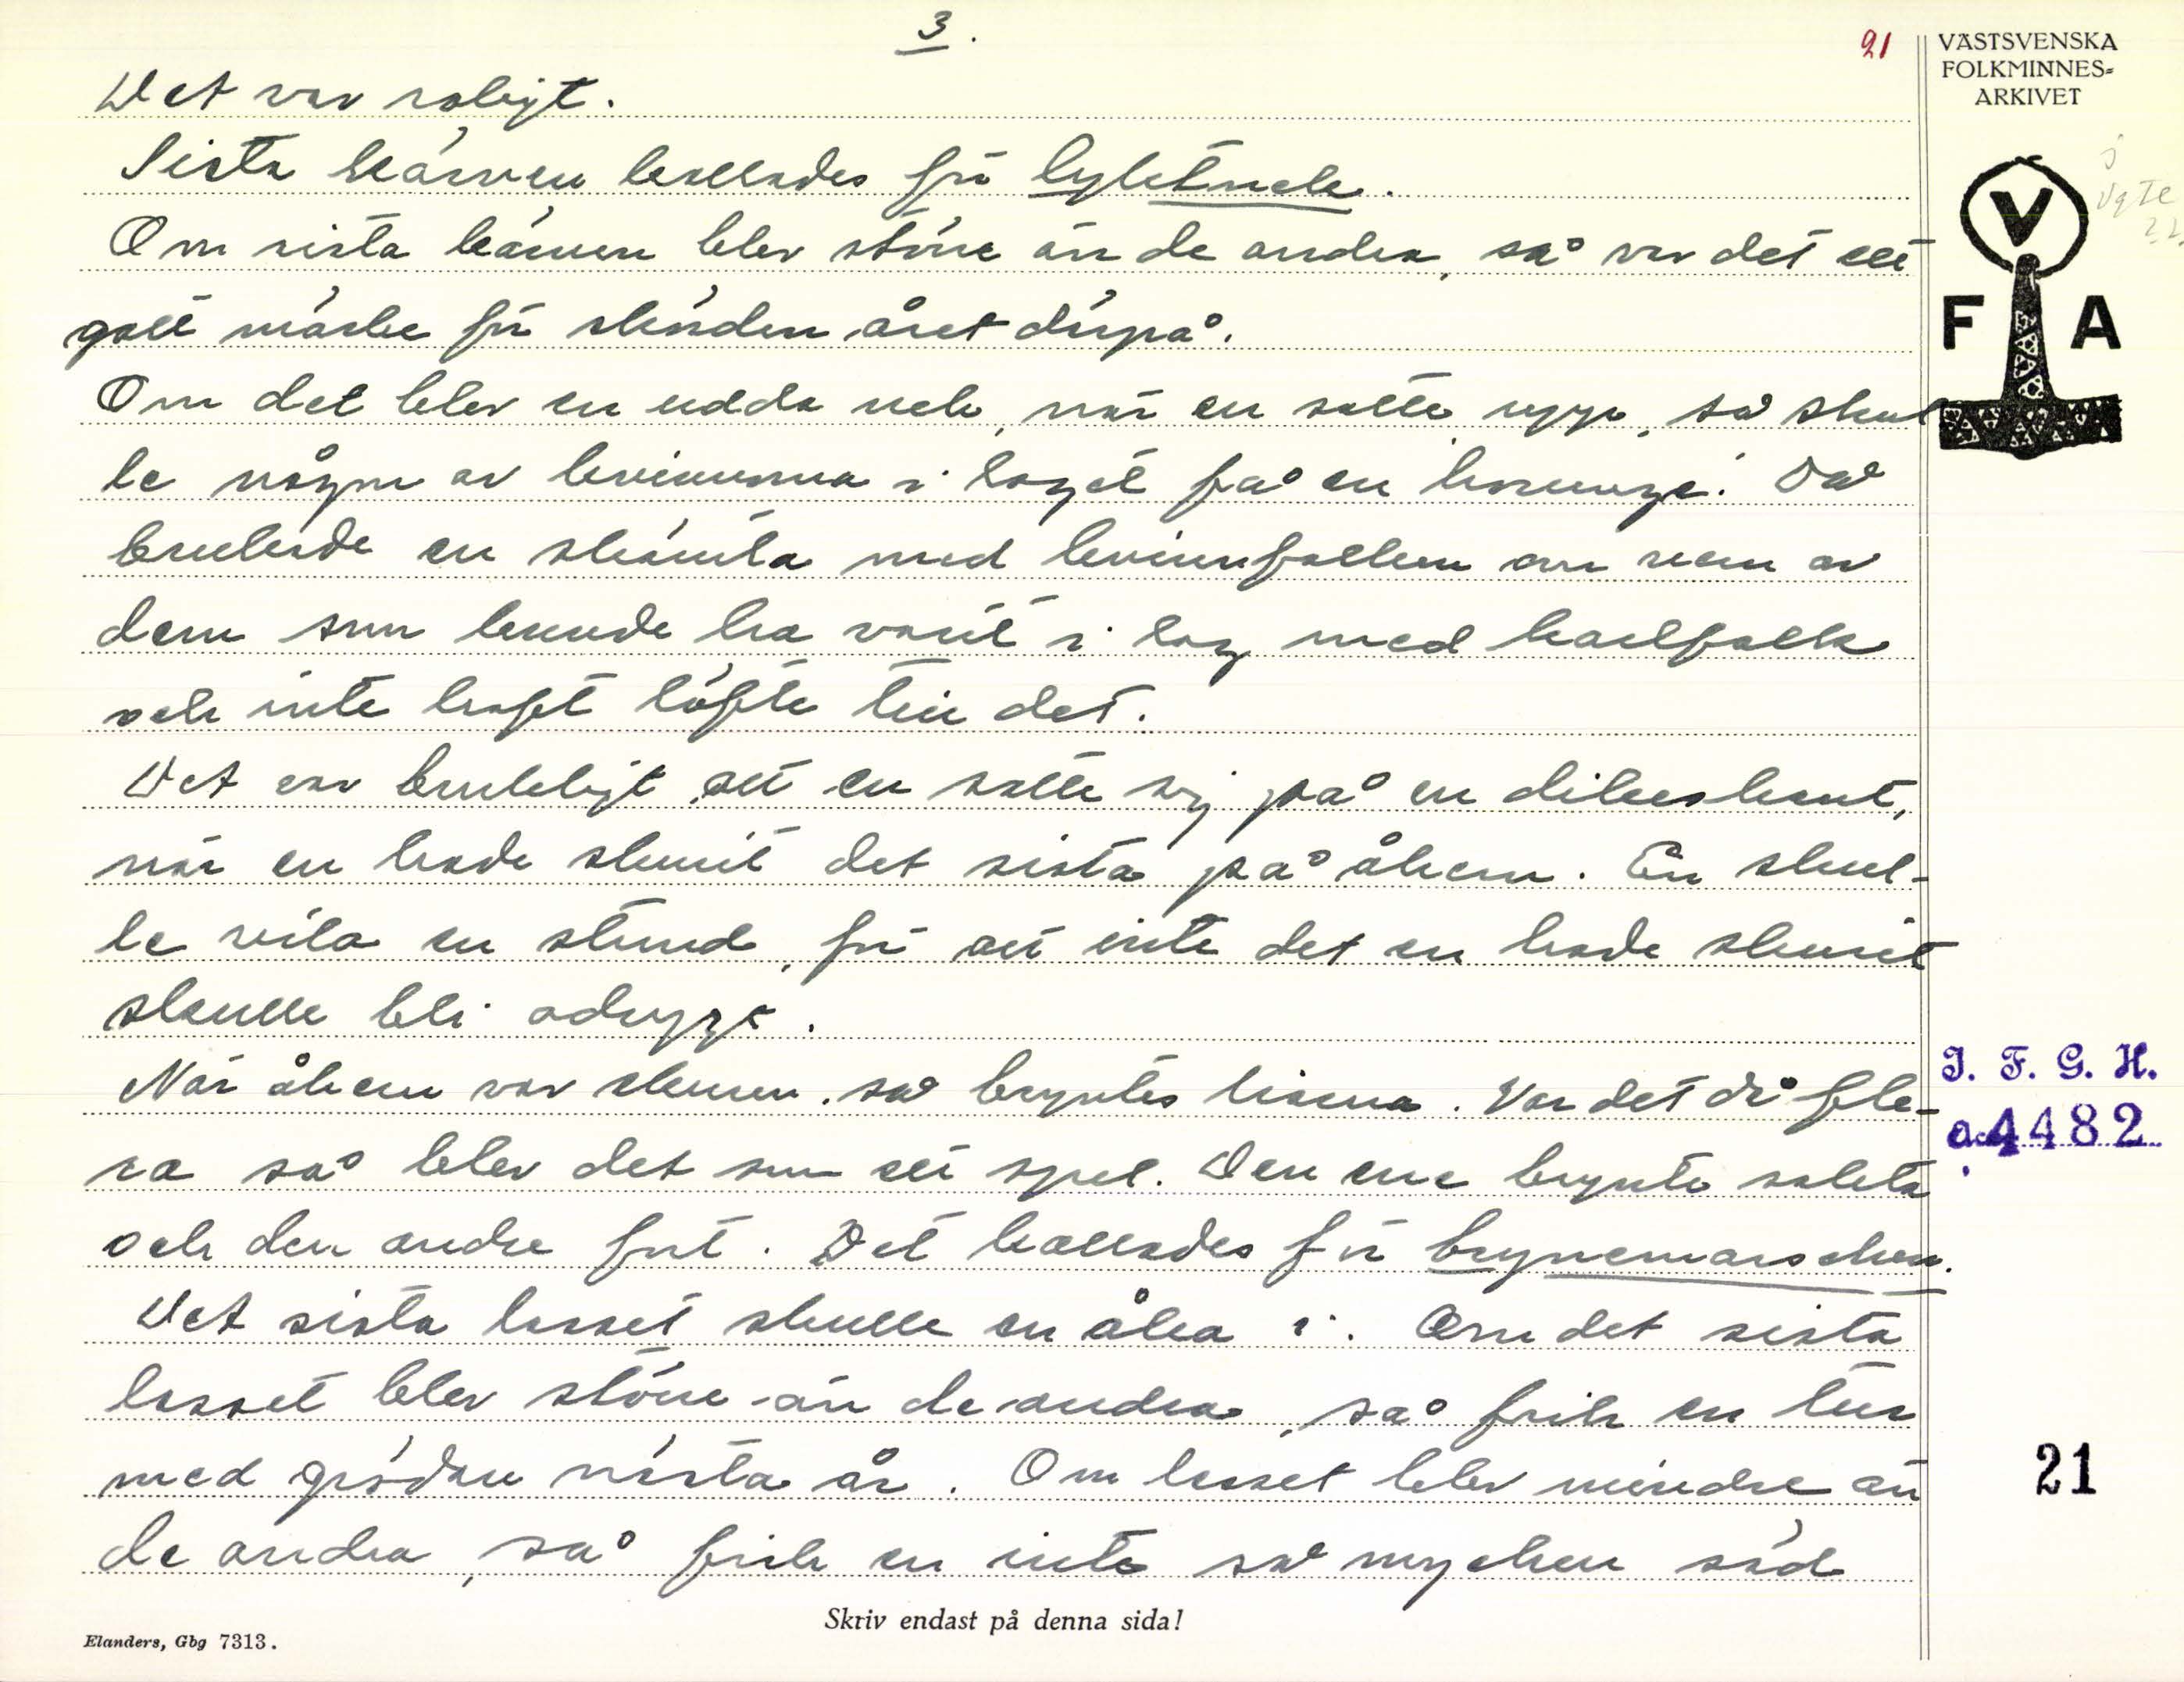 3.
21
VÄSTSVENSKA
FOLKMINNES=
ARKIVET
Det var roligt.
Sista kärven kallades för lyktnek.
Om sista kärven blev större än de andra, så var det ett
gott märke för skörden året därpå.
Om det blev en udda nek, när en satte upp, så skul
le någon av kvinnorna i laget få en horunge. Då
brukade en skämta med kvinnfolken om vem av
dem som kunde ha varit i lag med karlfolk
och inte haft löfte till det.
Det var brukligt att en satte sej på en dikeskant,
när en hade skurit det sista på åkern. En skul-
le vila en stund, för att inte det en hade skurit
skulle bli odrygt.
När åkern var skuren, så bryntes liarna. Var det då fle-
ra så blev det som ett spel. Den ene brynte sakta
och den andre fort. Det kallades för brynemarschen.
Det sista lasset skulle en åka i. Om det sista
lasset blev större än de andra, så fick en tur
med grödan nästa år. Om lasset blev mindre än
de andra, så fick en inte så mycken säd
V
F A
I. F. G. H.
acc 4482
21
Skriv endast på denna sida!
Elanders, Gbg 7313.